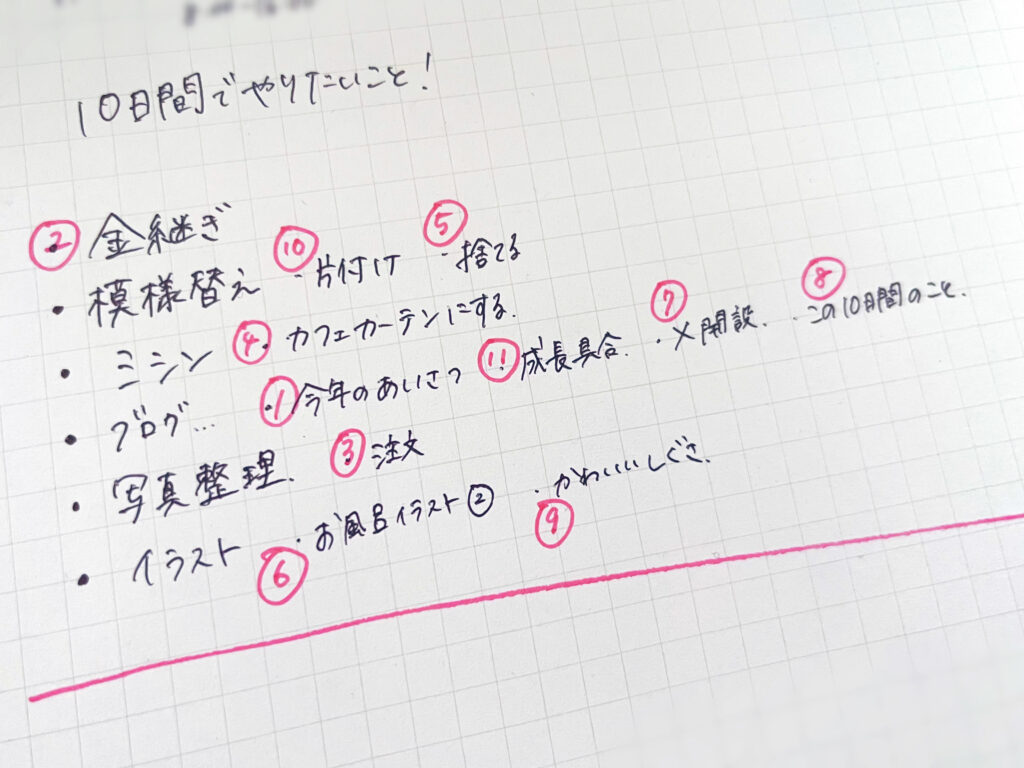 10日間でやりたいこと!
② 金継ぎ
・模様替え ⑩・片付け ⑤・捨てる
・ミシン ④・カフェカーテンにする.
・ブログ… ①・今年のあいさつ ⑪・成長具合. ⑦・X開設. ⑧・この10日間のこと.
・写真整理. ③・注文
・イラスト ⑥・お風呂イラスト② ⑨・かわいいしぐさ.